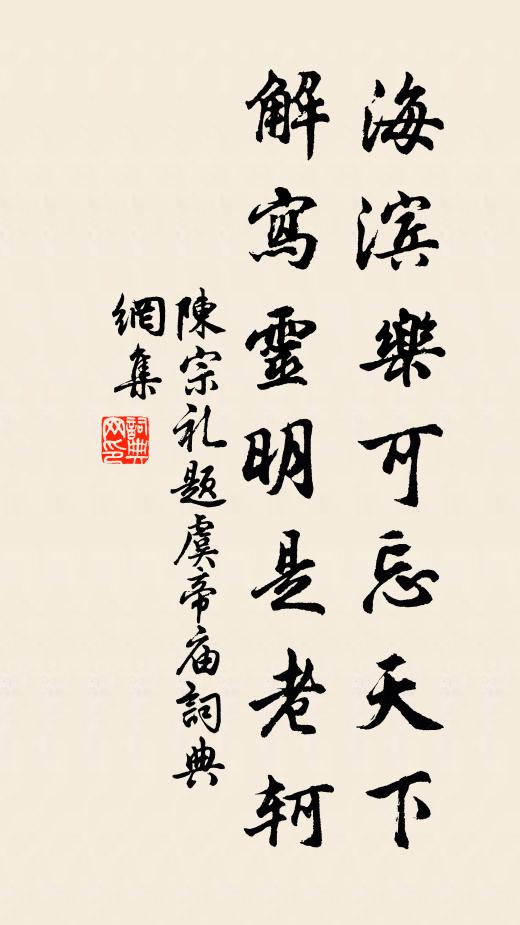 海滨樂可忘天下
解寫靈明是老轲
陳宗礼题虞帝庙詞典
網集
詞典网印